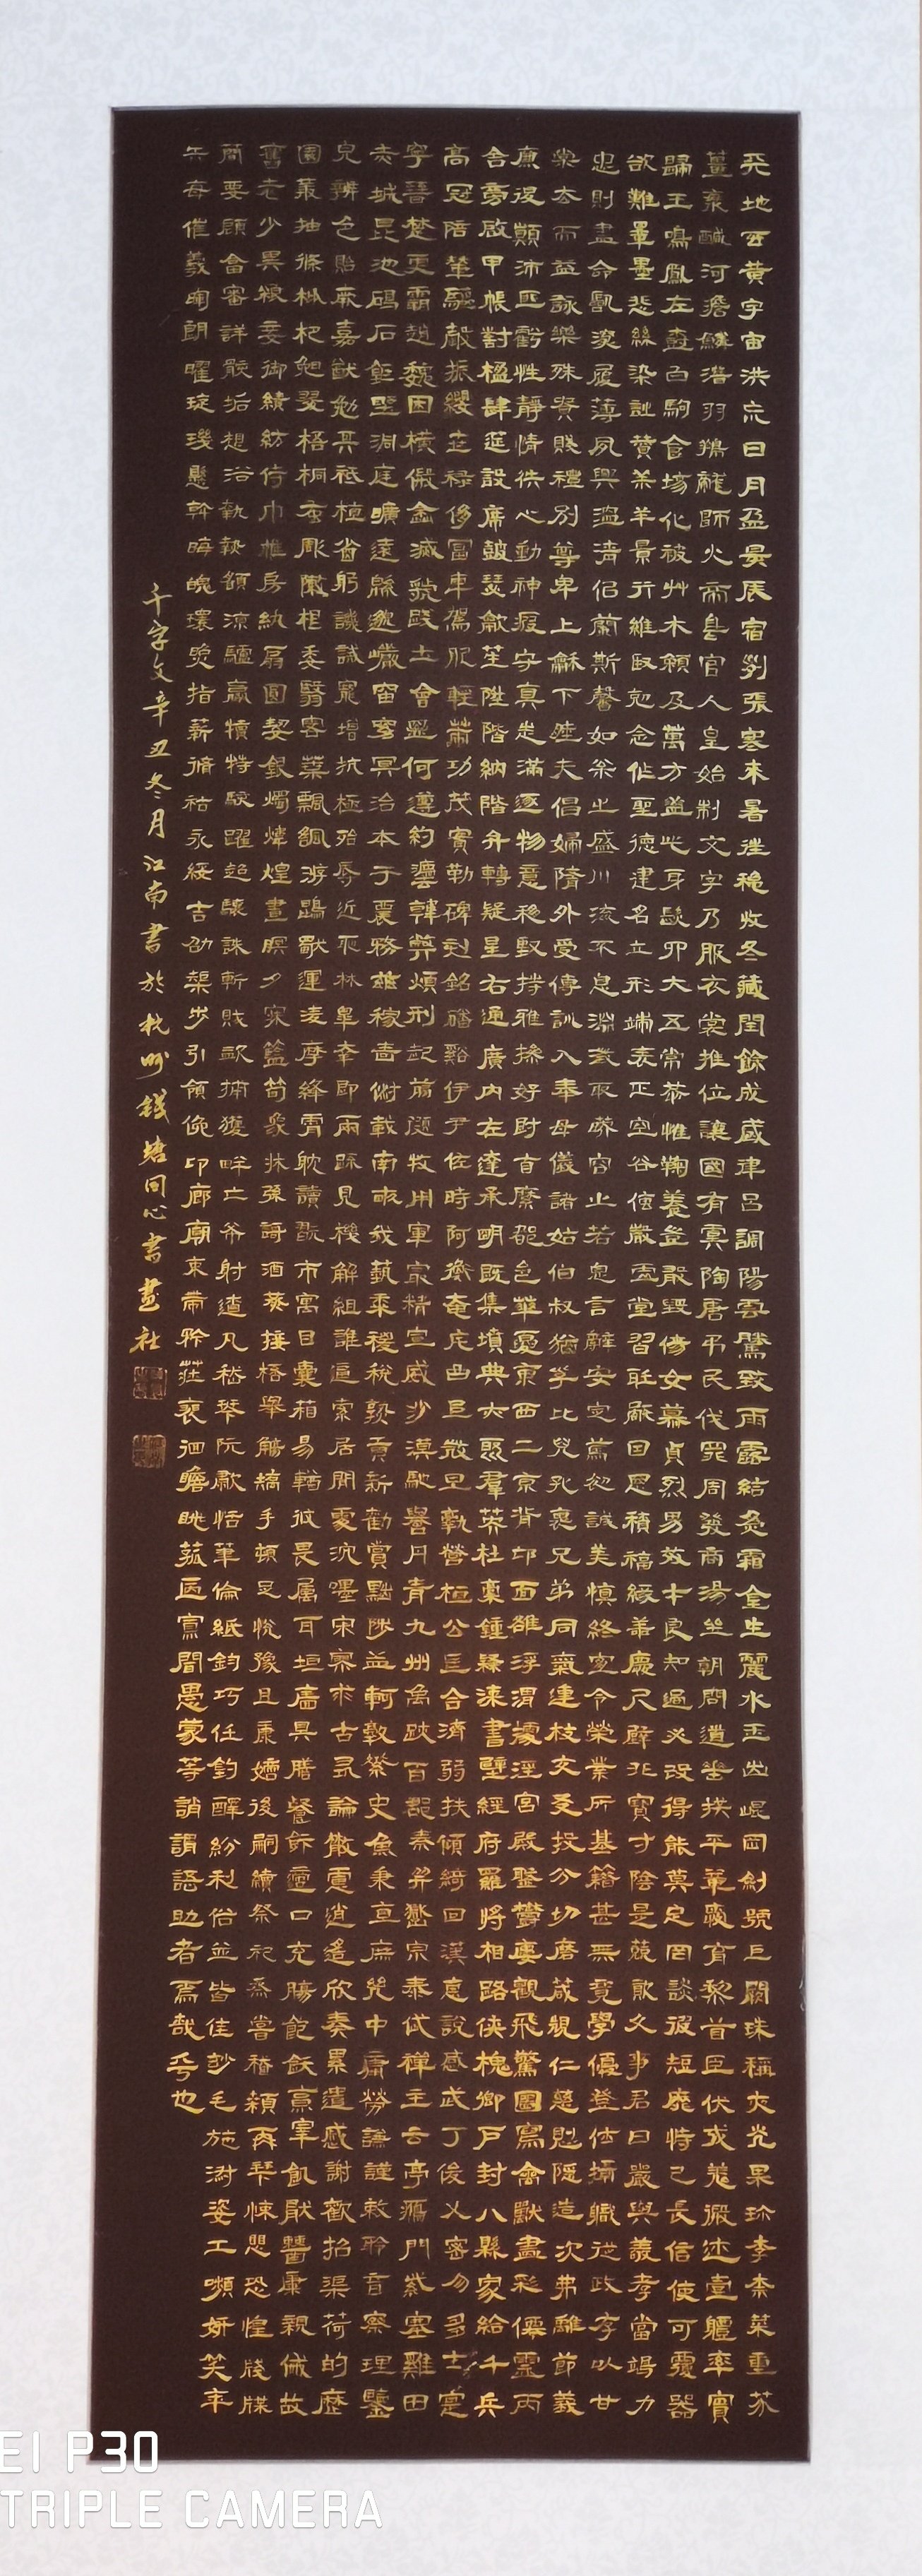 天地玄黃宇宙洪荒日月盈昃辰宿列張寒來暑往秋收冬藏閏餘成歲律呂調陽雲騰致雨露結為霜金生麗水玉出崐岡劍號巨闕珠稱夜光果珍李柰菜重芥
薑海鹹河澹鱗潛羽翔龍師火帝鳥官人皇始制文字乃服衣裳推位讓國有虞陶唐弔民伐罪周發商湯坐朝問道垂拱平章愛育黎首臣伏戎羌遐邇壹體率賓
歸王鳴鳳在樹白駒食場化被草木賴及萬方蓋此身髮四大五常恭惟鞠養豈敢毀傷女慕貞烈男效才良知過必改得能莫忘罔談彼短靡恃己長信使可覆器
欲難量墨悲絲染詩讚羔羊景行維賢克念作聖德建名立形端表正空谷傳聲虛堂習聽禍因惡積福緣善慶尺璧非寶寸陰是競資父事君曰嚴與敬孝當竭力
忠則盡命臨深履薄夙興溫凊似蘭斯馨如松之盛川流不息淵澄取映容止若思言辭安定篤初誠美慎終宜令榮業所基籍甚無竟學優登仕攝職從政存以甘
棠去而益詠樂殊貴賤禮別尊卑上龢下睦夫倡婦隨外受傅訓入奉母儀諸姑伯叔猶子比兒孔懷兄弟同氣連枝交友投分切磨箴規仁慈惻隱造次弗離節義
廉退顛沛匪虧性靜情逸心動神疲守真志滿逐物意移堅持雅操好爵自縻都邑華夏東西二京背邙面雒浮渭據涇宮殿盤鬱樓觀飛驚圖寫禽獸畫彩僊靈丙
舍旁啟甲帳對楹肆筵設席鼓瑟歙笙陞階納階弁轉疑星右通廣內左達承明既集墳典亦聚羣英杜稾鍾隸漆書壁經府羅將相路俠槐卿戶封八縣家給千兵
高冠陪輦驅轂振纓世祿侈富車駕肥輕策功茂實勒碑刻銘磻谿伊尹佐時阿衡奄宅曲阜微旦孰營桓公匡合濟弱扶傾綺回漢惠說感武丁俊乂密勿多士寔
寧晉楚更霸趙魏困橫假途滅虢踐土會盟何遵約灋韓弊煩刑起翦頗牧用軍最精宣威沙漠馳譽丹青九州禹跡百郡秦并嶽宗泰岱禪主云亭鴈門紫塞雞田
赤城昆池碣石鉅野洞庭曠遠緜邈巖岫窅冥治本于農務茲稼穡俶載南畝我藝黍稷稅熟貢新勸賞黜陟孟軻敦素史魚秉直庶幾中庸勞謙謹敕聆音察理鑒
皃辨色貽厥嘉猷勉其祗植省躬譏誡寵增抗極殆辱近恥林皋幸即兩疏見機解組誰逼索居閒處沈嘿寂寥求古尋論散慮逍遙欣奏累遣慼謝歡招渠荷的歷
園莽抽條枇杷晚翠梧桐蚤彫陳根委翳落葉飄颻游鵾獨運凌摩絳霄耽讀翫市寓目囊箱易輶攸畏屬耳垣牆具膳餐飯適口充腸飽飫烹宰飢厭糟糠親戚故
舊老少異糧妾御績紡侍巾帷房紈扇圓絜銀燭煒煌晝瞑夕寐籃筍象牀弦歌酒宴接桮舉觴矯手頓足悅豫且康嫡後嗣續祭祀烝嘗稽顙再拜悚懼恐惶牋牒
簡要顧答審詳骸垢想浴執熱願涼驢騾犢特駭躍超驤誅斬賊盜捕獲畔亡布射遼丸嵇琴阮嘯恬筆倫紙鈞巧任釣釋紛利俗並皆佳妙毛施淑姿工嚬妍笑年
矢每催羲晌朗曜琁璣懸斡晦魄環照指薪脩祜永綏吉劭榘步引領俛卬廊廟束帶矜莊裵徊瞻眺孤陋寡聞愚蒙等誚謂語助者焉哉乎也
千字文辛丑冬月江南書於杭州錢塘同心書畫社
EI P30
TRIPLE CAMERA